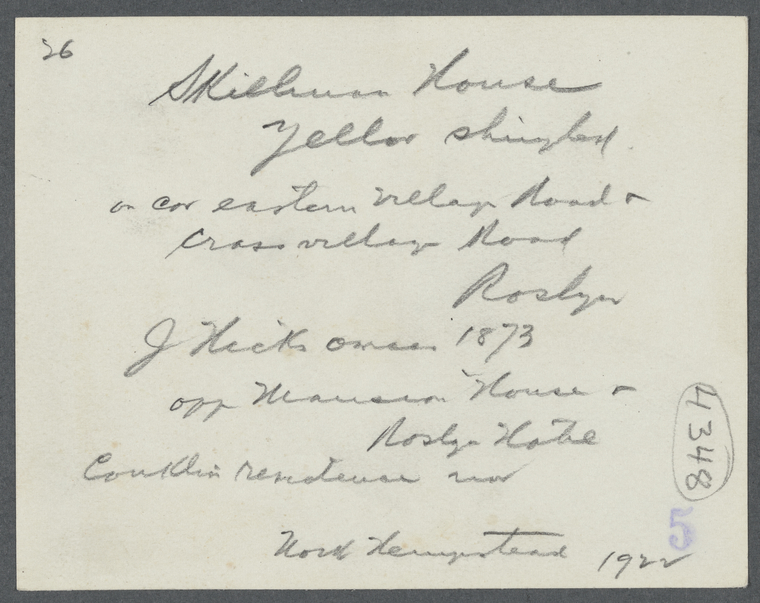 26
Skillman House
Yellow shingled
on cor eastern village Road &
cross village Road
Roslyn
J Hicks owner 1873
opp Mansion House &
Roslyn Hotel
Conklin residence now
North Hempstead 1922
4348